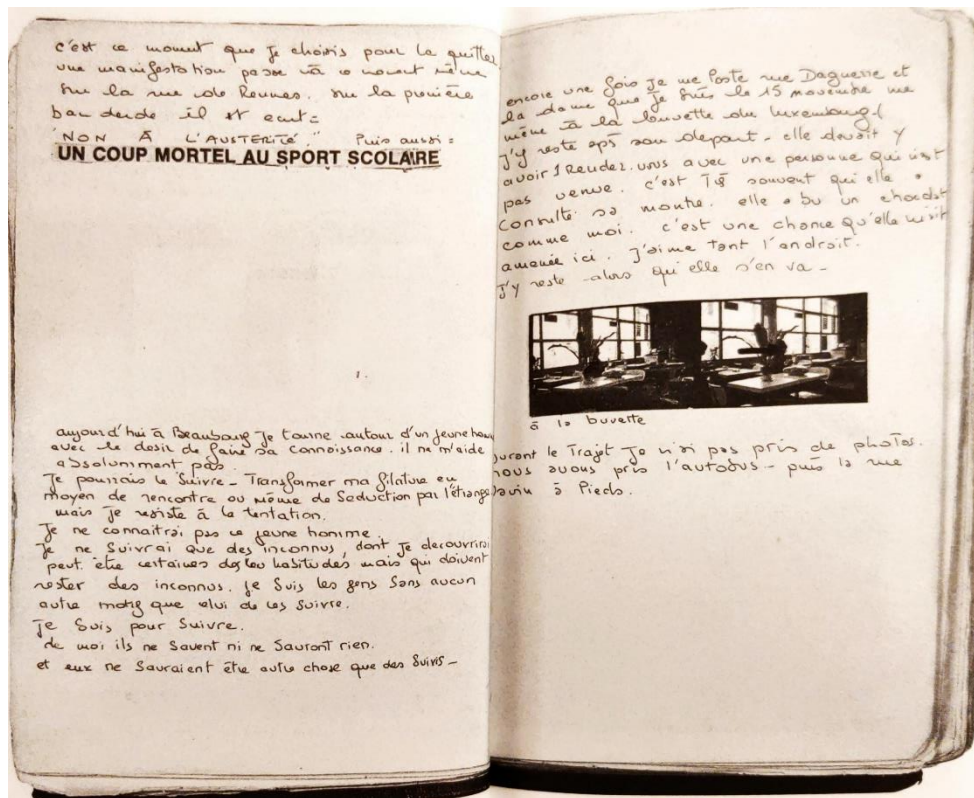 c'est ce moment que je choisis pour la quitter
une manifestation passe à ce moment même
sur la rue de Rennes. sur la première
banderole il est écrit =
"NON À L'AUSTÉRITÉ." Puis aussi =
UN COUP MORTEL AU SPORT SCOLAIRE
aujourd'hui à Beaubourg Je tourne autour d'un jeune homme
avec le désir de faire sa connaissance. il ne m'aide
absolumment pas.
Je pourrais le Suivre - Transformer ma filature en
moyen de rencontre ou même de Seduction par l'étrange
mais Je resiste à la tentation.
Je ne connaitrai pas ce jeune homme.
Je ne Suivrai que des inconnus, dont Je decouvrirai
peut être certaines de leu habitudes mais qui doivent
rester des inconnus. Je Suis les gens Sans aucun
autre motif que celui de les suivre.
Je Suis pour Suivre.
de moi ils ne Savent ni ne Sauront rien.
et eux ne Sauraient être autre chose que des Suivis -
encore une fois Je me Poste rue Daguerre et
la dame que Je Suis le 15 novembre me
mène à la buvette du luxembourg.
J'y reste aps son depart - elle devait y
avoir 1 Rendez.vous avec une personne qui n'est
pas venue. c'est souvent qu'elle a
Consulté sa montre. elle a bu un chocolat
comme moi. c'est une chance qu'elle m'ait
amenée ici. J'aime tant l'androit.
J'y reste alors qu'elle s'en va -
à la buvette
durant le Trajet Je n'ai pas pris de photos.
nous avons pris l'autobus - puis la rue
à Pieds.